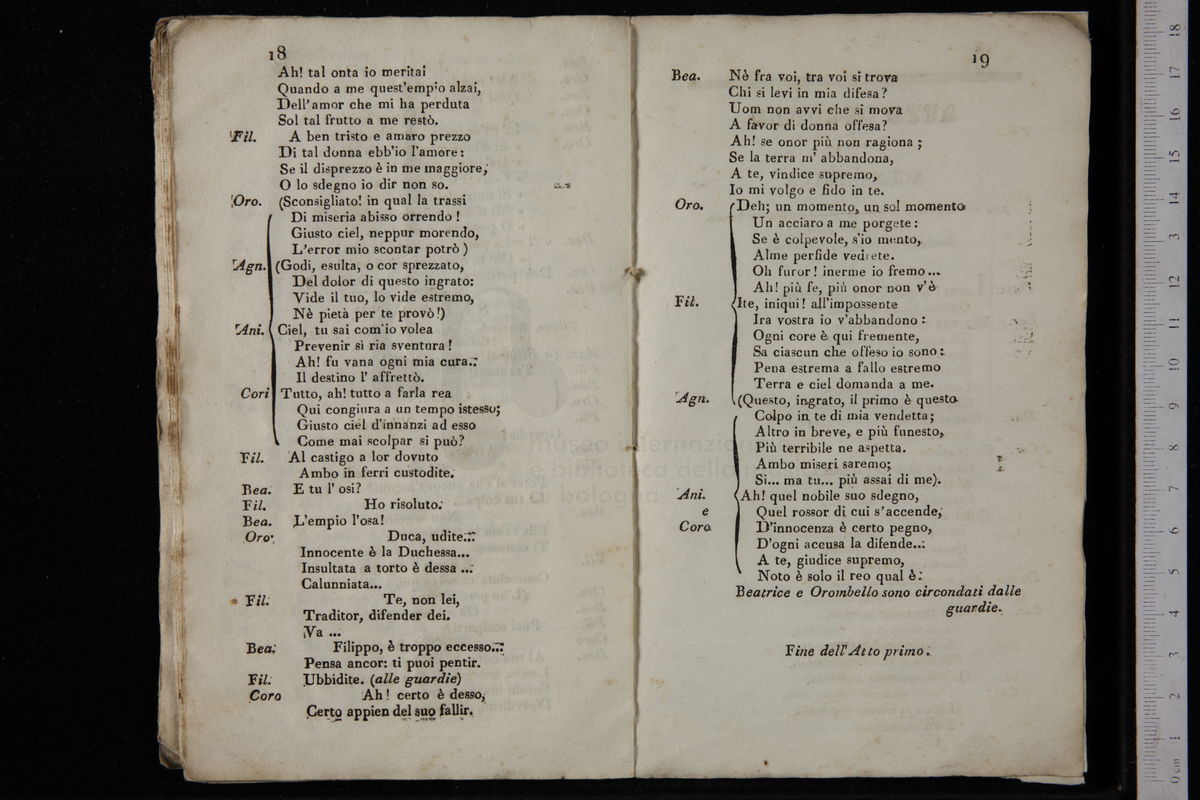 18
Ah! tal onta io meritai
Quando a me quest'empio alzai,
Dell'amor che mi ha perduta
Sol tal frutto a me restò.
Fil. A ben tristo e amaro prezzo
Di tal donna ebb'io l'amore:
Se il disprezzo è in me maggiore,
O lo sdegno io dir non so.
Oro. (Sconsigliato! in qual la trassi
Di miseria abisso orrendo!
Giusto ciel, neppur morendo,
L'error mio scontar potrò)
Agn. (Godi, esulta, o cor sprezzato,
Del dolor di questo ingrato:
Vide il tuo, lo vide estremo,
Nè pietà per te provò!)
Ani. Ciel, tu sai com'io volea
Prevenir sì ria sventura!
Ah! fu vana ogni mia cura..:
Il destino l' affrettò.
Cori Tutto, ah! tutto a farla rea
Qui congiura a un tempo istesso;
Giusto ciel d'innanzi ad esso
Come mai scolpar si può?
Fil. Al castigo a lor dovuto
Ambo in ferri custodite.
Bea. E tu l' osi?
Fil. Ho risoluto.
Bea. L'empio l'osa!
Oro. Duca, udite...
Innocente è la Duchessa...
Insultata a torto è dessa ...
Calunniata...
Fil. Te, non lei,
Traditor, difender dei.
Va ...
Bea. Filippo, è troppo eccesso...
Pensa ancor: ti puoi pentir.
Fil. Ubbidite. (alle guardie)
Coro Ah! certo è desso,
Certo appien del suo fallir.
19
Bea. Nè fra voi, tra voi si trova
Chi si levi in mia difesa?
Uom non avvi che si mova
A favor di donna offesa?
Ah! se onor più non ragiona ;
Se la terra m' abbandona,
A te, vindice supremo,
Io mi volgo e fido in te.
Oro. Deh; un momento, un sol momento
Un acciaro a me porgete:
Se è colpevole, s'io mento,
Alme perfide vedrete.
Oh furor! inerme io fremo...
Ah! più fe, più onor non v'è
Fil. Ite, iniqui! all'impossente
Ira vostra io v'abbandono:
Ogni core è qui fremente,
Sa ciascun che offeso io sono:
Pena estrema a fallo estremo
Terra e ciel domanda a me.
Agn. (Questo, ingrato, il primo è questo
Colpo in te di mia vendetta;
Altro in breve, e più funesto,
Più terribile ne aspetta.
Ambo miseri saremo;
Si... ma tu... più assai di me).
Ani. Ah! quel nobile suo sdegno,
e Quel rossor di cui s'accende,
Coro D'innocenza è certo pegno,
D'ogni accusa la difende...
A te, giudice supremo,
Noto è solo il reo qual è.
Beatrice e Orombello sono circondati dalle
guardie.
Fine dell'Atto primo.
museo internazion
e biblioteca della m
di bologna
0 cm 1 2 3 4 5 6 7 8 9 10 11 12 13 14 15 16 17 18